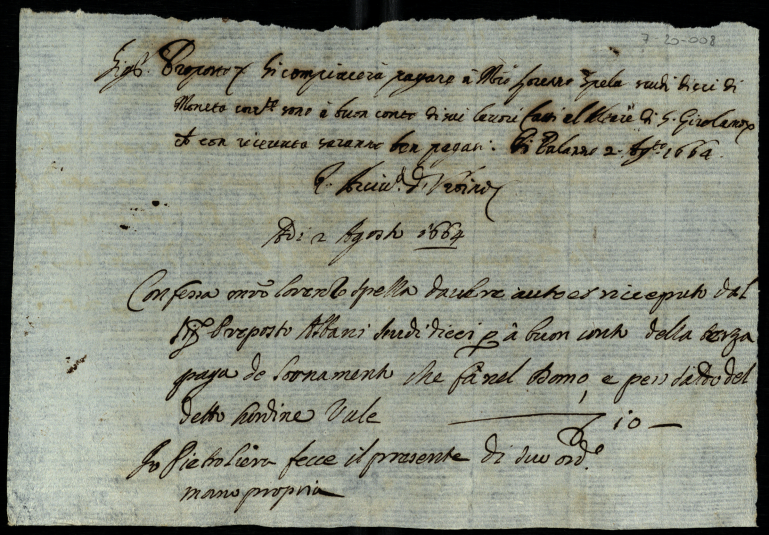 7-20-008
Sigr. Proposto si compiacerà pagare à Mro Lorenzo Spela scudi dieci di
Moneta corrte sono à buon conto di sui lavori fatti al Altare di S. Girolamo
et con ricevuta saranno ben pagati. Di Palazzo 2 Agto 1664
L'Arciv. d'Urbino
Adi 2 Agosto 1664
Confessa mro Lorenzo Spella d'avere auto et riceputo dal
Sigr Preposto Albani scudi dieci p à buon conto della terza
paga de Lornamento che fà nel Domo, e per saldo del
detto hordine Vale 10
Io Pietro Liera fecce il presente di suo ord.e
mano propria